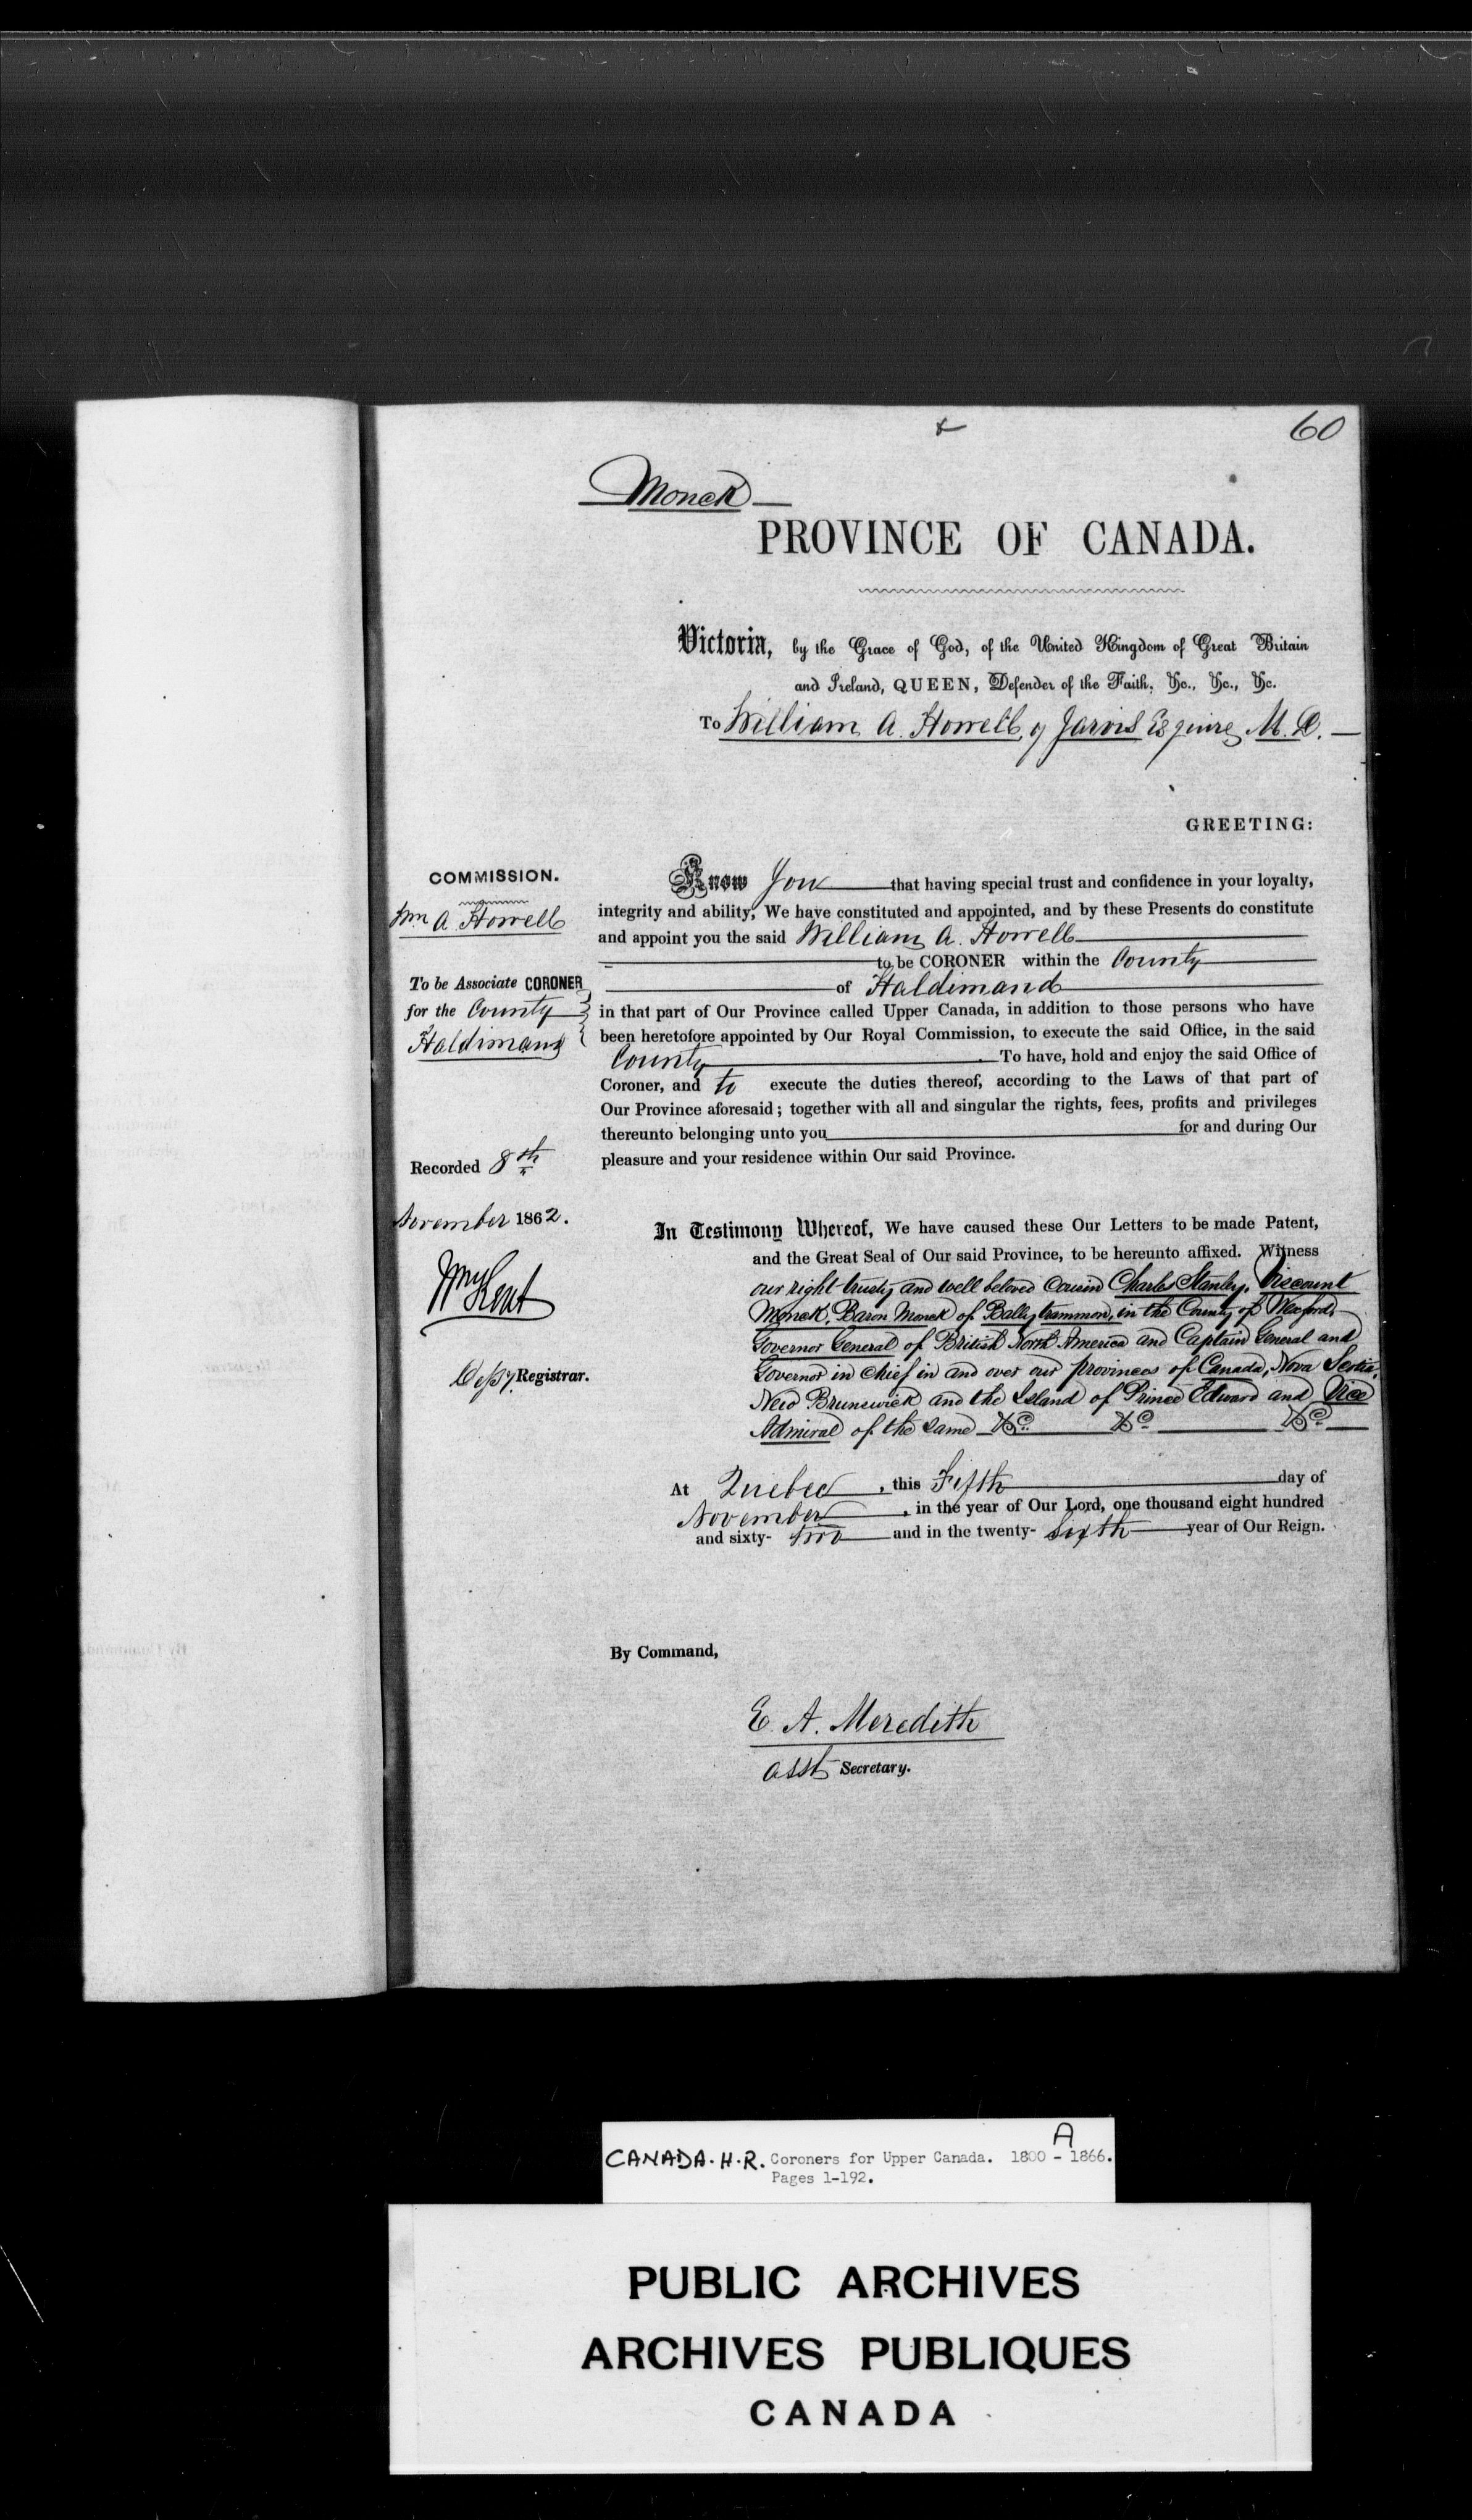 60
Monck
PROVINCE OF CANADA.
Victoria, by the Grace of God, of the United Kingdom of Great Britain
and Ireland, QUEEN, Defender of the Faith, &c., &c., &c.
To William A. Howell, of Jarvis Esquire, M.D.
GREETING:
COMMISSION.
Wm A. Howell
To be Associate CORONER
for the County
Haldimand
Recorded 8th
November 1862.
Wm Kent
Depy Registrar.
Know You that having special trust and confidence in your loyalty,
integrity and ability, We have constituted and appointed, and by these Presents do constitute
and appoint you the said William A. Howell
to be CORONER within the County
of Haldimand
in that part of Our Province called Upper Canada, in addition to those persons who have
been heretofore appointed by Our Royal Commission, to execute the said Office, in the said
County. To have, hold and enjoy the said Office of
Coroner, and to execute the duties thereof, according to the Laws of that part of
Our Province aforesaid; together with all and singular the rights, fees, profits and privileges
thereunto belonging unto you for and during Our
pleasure and your residence within Our said Province.
In Testimony Whereof, We have caused these Our Letters to be made Patent,
and the Great Seal of Our said Province, to be hereunto affixed. Witness
our right trusty and well beloved Cousin Charles Stanley, Viscount
Monck, Baron Monck of Ballytrammon, in the County of Wexford,
Governor General of British North America and Captain General and
Governor in Chief in and over our provinces of Canada, Nova Scotia,
New Brunswick and the Island of Prince Edward and Vice
Admiral of the Same &c. &c &c
At Quebec, this Fifth day of
November, in the year of Our Lord, one thousand eight hundred
and sixty-two and in the twenty-sixth year of Our Reign.
By Command,
E. A. Meredith
Asst Secretary.
A
CANADA. H.R. Coroners for Upper Canada. 1800 - 1866.
Pages 1-192.
PUBLIC ARCHIVES
ARCHIVES PUBLIQUES
CANADA